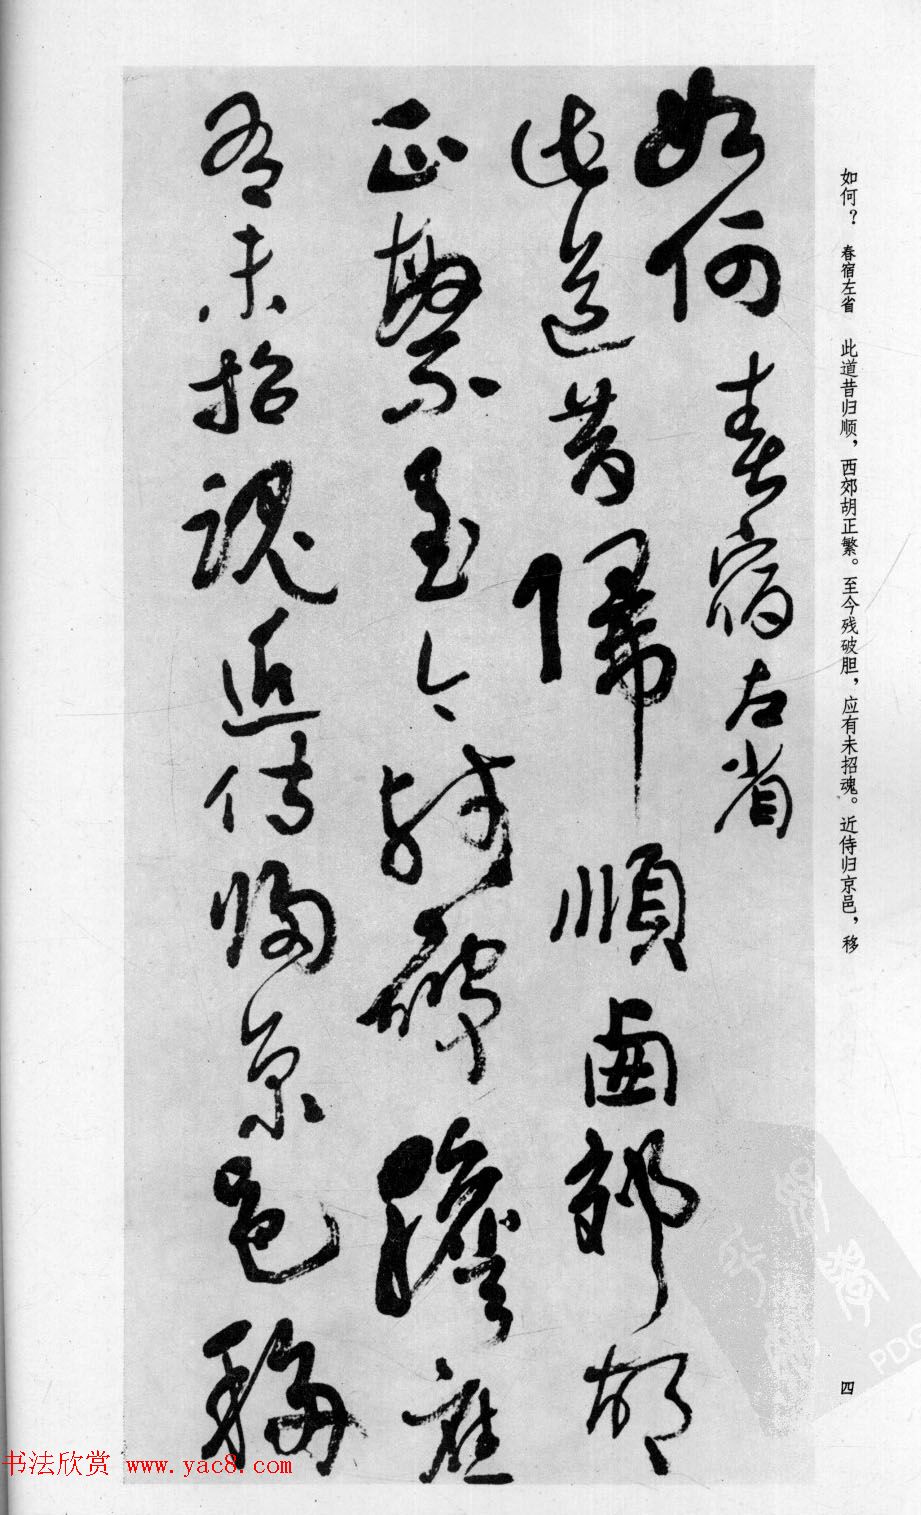 如何春宿左省
此道昔歸順西郊胡
正繁至今殘破膽應
有未招魂近侍歸京邑移
如何？ 春宿左省 此道昔归顺，西郊胡正繁。至今残破胆，应有未招魂。近侍归京邑，移
四
书法欣赏 www.yac8.com